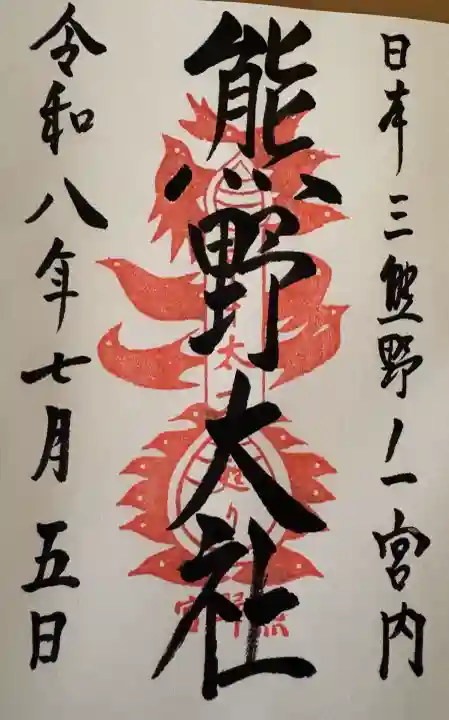 日本三熊野ノ一宮内
熊野大社
令和八年七月五日